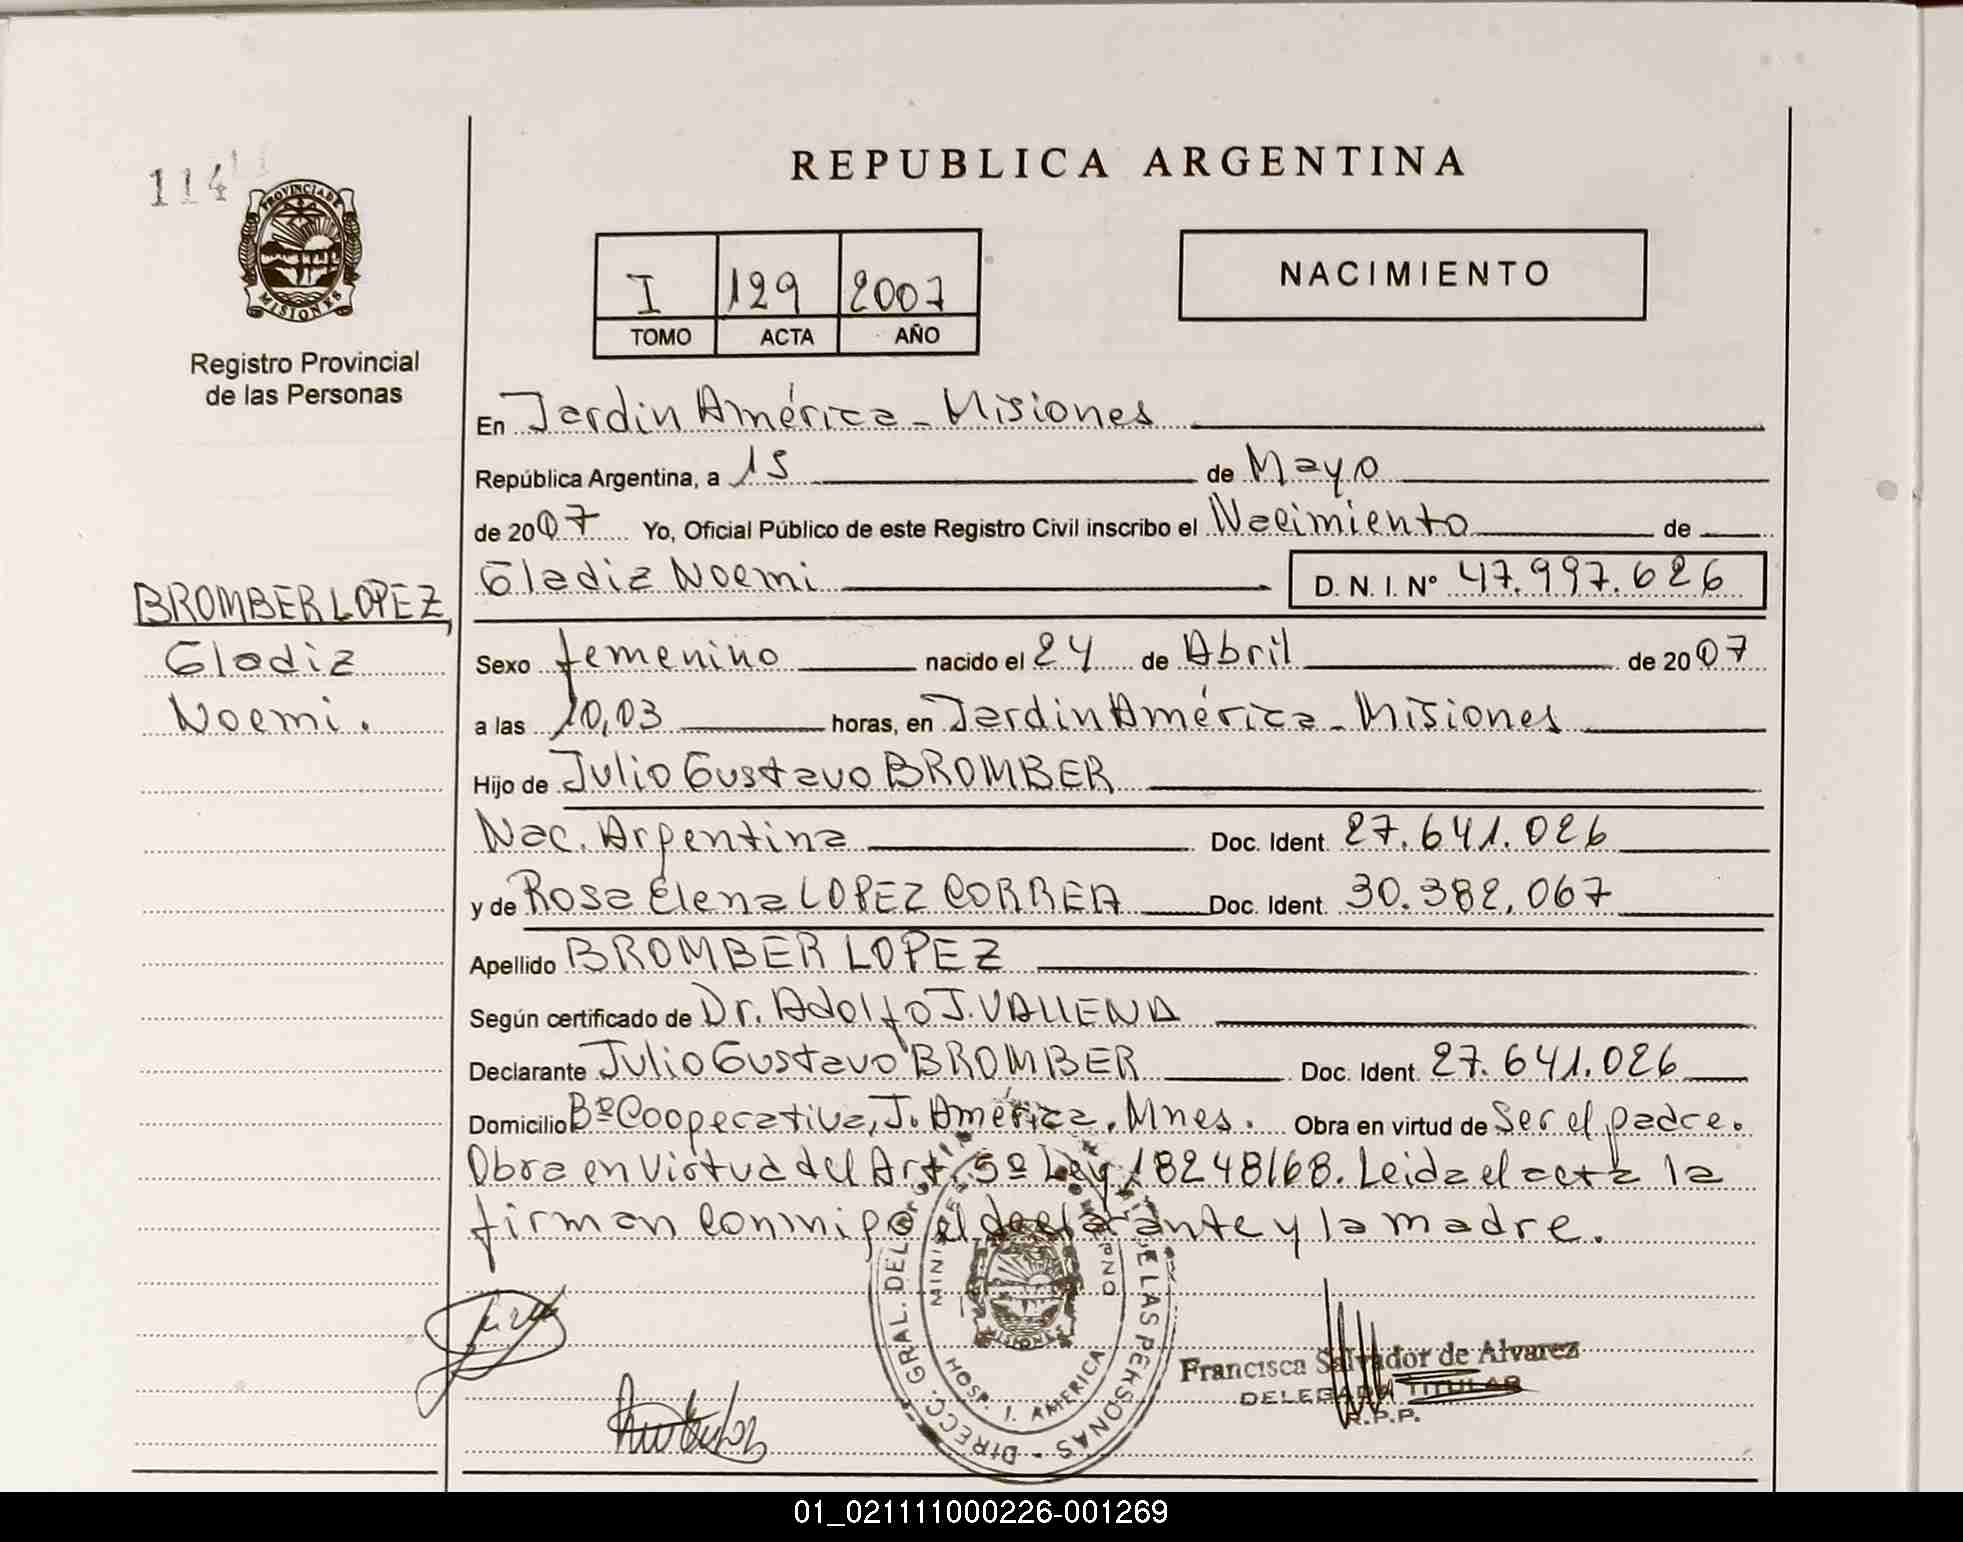 114
PROVINCIA DE
MISIONES
Registro Provincial
de las Personas
BROMBER LOPEZ,
Gladiz
Noemi.
REPUBLICA ARGENTINA
I 129 2007
TOMO ACTA AÑO
NACIMIENTO
En Jardin América - Misiones
República Argentina, a 15 de Mayo
de 2007 Yo, Oficial Público de este Registro Civil inscribo el Nacimiento de
Gladiz Noemi D. N. I. Nº 47.997.626
Sexo femenino nacido el 24 de Abril de 2007
a las 10,03 horas, en Jardin América - Misiones
Hijo de Julio Gustavo BROMBER
Nac. Argentina Doc. Ident. 27.641.026
y de Rosa Elena LOPEZ CORREA Doc. Ident. 30.382.067
Apellido BROMBER LOPEZ
Según certificado de Dr. Adolfo J. VALLENA
Declarante Julio Gustavo BROMBER Doc. Ident. 27.641.026
Domicilio Bº Cooperativa, J. América, Mnes. Obra en virtud de Ser el padre.
Obra en Virtud del Art. 5º Ley 18248/68. Leida el acta la
firman conmigo el declarante y la madre.
DIRECC. GRAL. DEL DE LAS PERSONAS
HOSP. J. AMERICA
Francisca Salvador de Alvarez
DELEGADA TITULAR
R.P.P.
01_021111000226-001269